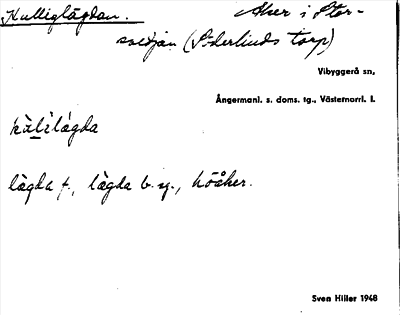 Kulliglägdan. Åker i Stor-
svedjan (Söderlinds torp)
Vibyggerå sn,
Ångermanl. s. doms. tg., Västernorrl. l.
lägda f., lägda b. sg., höåker.
Sven Hiller 1948